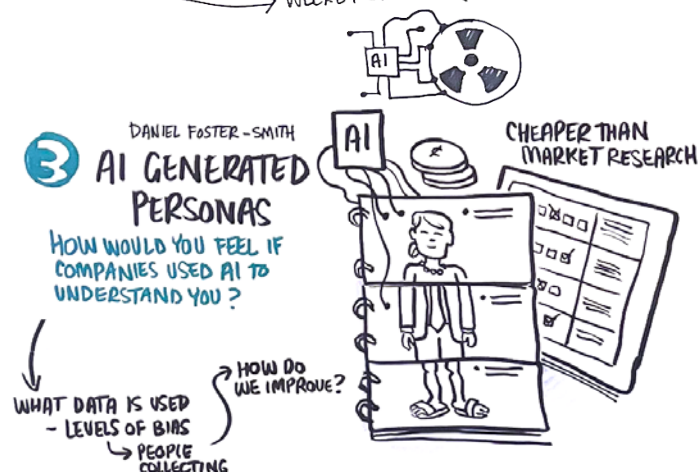 AI
3
DANIEL FOSTER-SMITH
AI GENERATED
PERSONAS
HOW WOULD YOU FEEL IF
COMPANIES USED AI TO
UNDERSTAND YOU?
AI
CHEAPER THAN
MARKET RESEARCH
WHAT DATA IS USED
- LEVELS OF BIAS
PEOPLE
COLLECTING
HOW DO
WE IMPROVE?